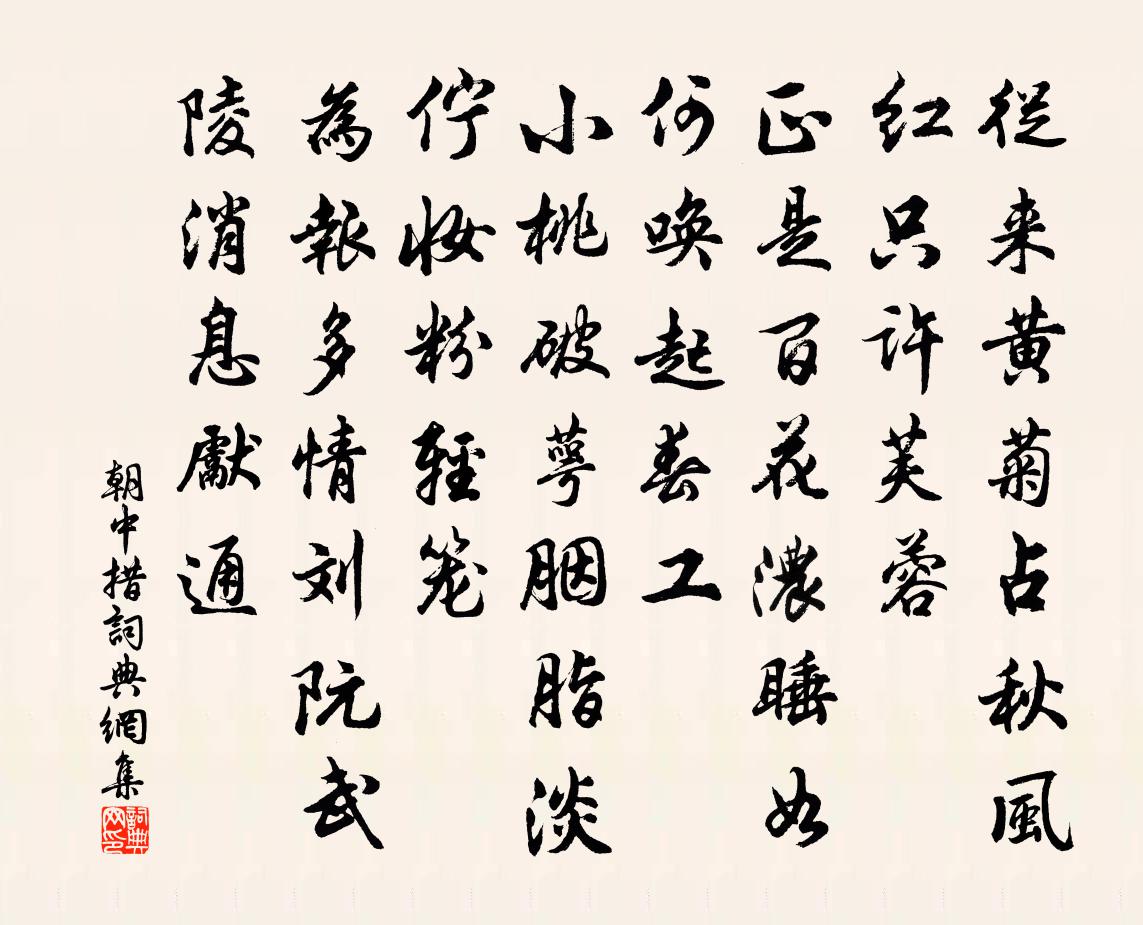 從来黄菊占秋風
红只许芙蓉
正是百花濃睡如
何唤起春工
小桃破萼胭脂淡
佇妆粉輕笼
為報多情刘阮武
陵消息獻通
朝中措詞典網集
詞典
网印